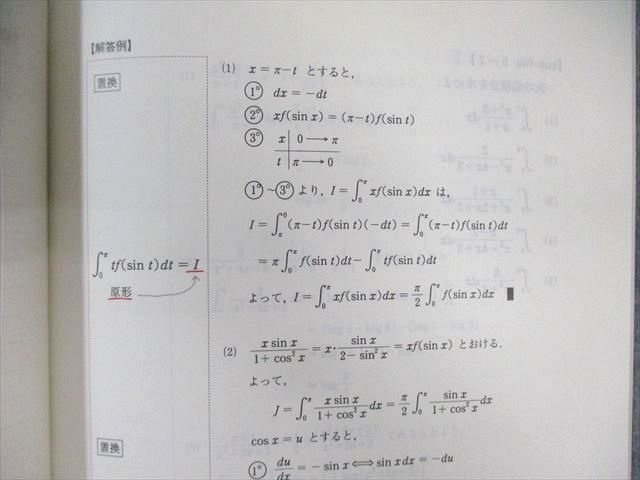 【解答例】
置換
(1) x = π−t とすると,
①° dx = −dt
②° xf(sin x) = (π−t)f(sin t)
③° x | 0 ⟶ π
t | π ⟶ 0
①°〜③° より, I = ∫₀^π xf(sin x)dx は,
I = ∫_π^0 (π−t)f(sin t)(−dt) = ∫₀^π (π−t)f(sin t)dt
= π∫₀^π f(sin t)dt − ∫₀^π tf(sin t)dt
∫₀^π tf(sin t)dt = I
原形
よって, I = ∫₀^π xf(sin x)dx = π/2 ∫₀^π f(sin x)dx ■
(2) x sin x / (1 + cos² x) = x· sin x / (2 − sin² x) = xf(sin x) とおける.
よって,
J = ∫₀^π x sin x / (1 + cos² x) dx = π/2 ∫₀^π sin x / (1 + cos² x) dx
cos x = u とすると,
置換
①° du/dx = − sin x ⟺ sin x dx = −du